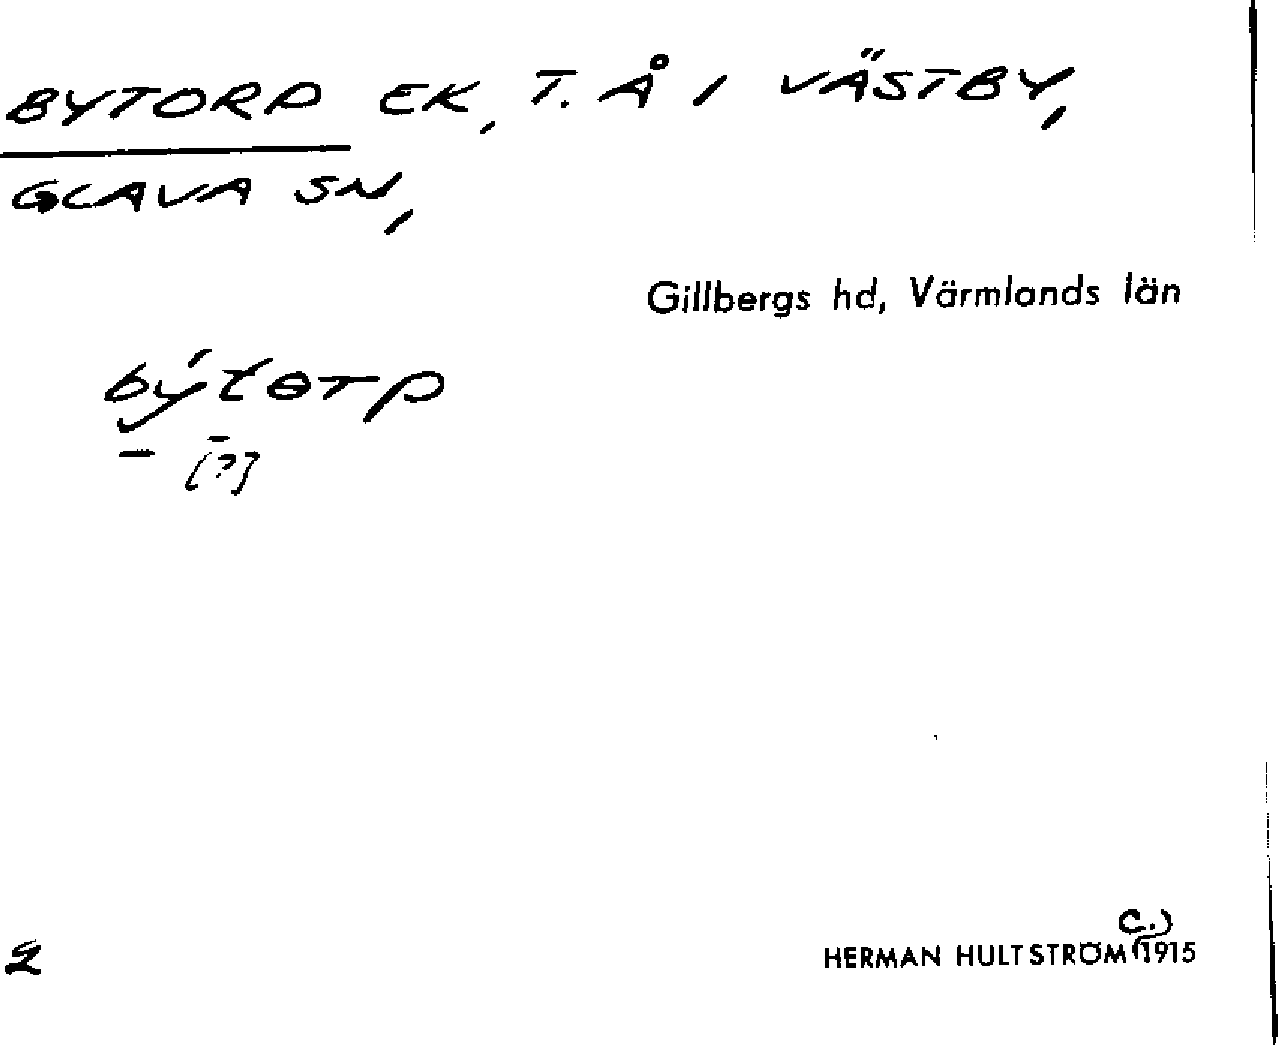 BYTORP EK, T. Å I VÄSTBY,
GLAVA SN,
Gillbergs hd, Värmlands län
býtɵrp
[?]
HERMAN HULTSTRÖM (C.) 1915
2